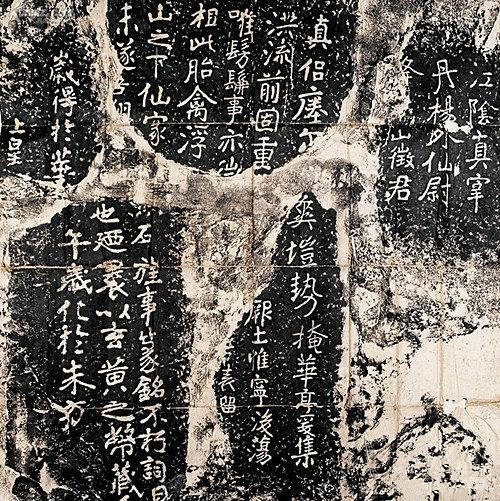 江陰真宰
丹楊外仙尉
山徵君
真侶瘞尔
洪流前固重
惟髣髴事亦
相此胎禽浮
山之下仙家
未遂吾翔
歲得於華
上皇
爽塏勢掩華亭爰集
厥土惟寧後蕩
表留
石旌事篆銘不朽詞曰
也迺裹以玄黄之幣藏
午歲化於朱方